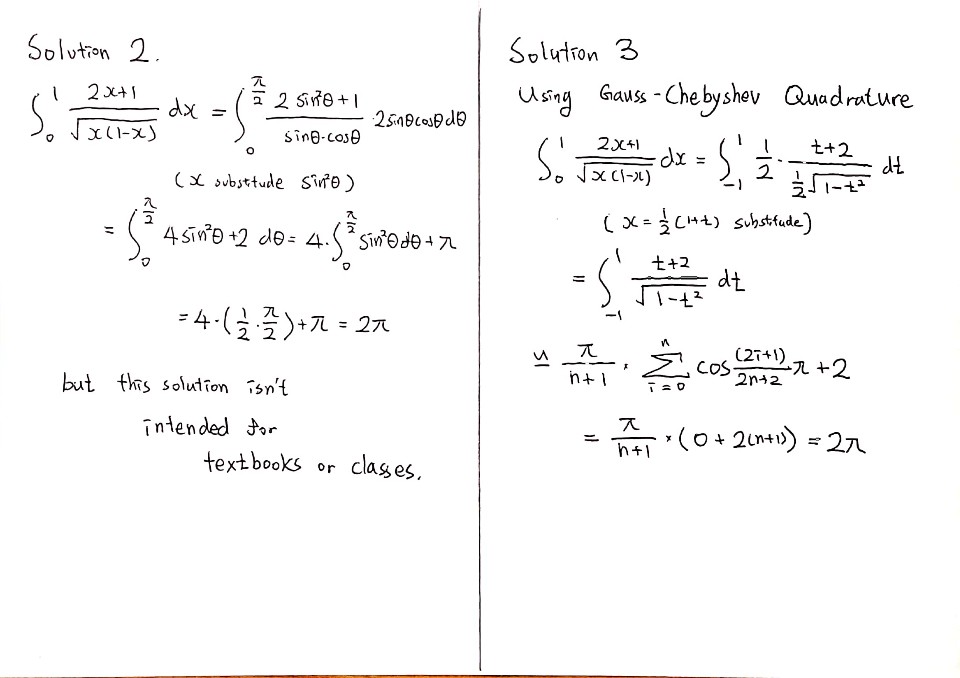 Solution 2.
∫₀¹ (2x+1)/√(x(1-x)) dx = ∫₀^(π/2) (2 sin²θ+1)/(sinθ·cosθ) ·2sinθcosθdθ
(x substitude sin²θ)
= ∫₀^(π/2) 4sin²θ+2 dθ = 4·∫₀^(π/2) sin²θdθ+π
= 4·(1/2·π/2)+π = 2π
but this solution isn't
intended for
textbooks or classes.
Solution 3
Using Gauss-Chebyshev Quadrature
∫₀¹ (2x+1)/√(x(1-x)) dx = ∫₋₁¹ 1/2 · (t+2)/(1/2 √(1-t²)) dt
(x = 1/2 (1+t) substitude)
= ∫₋₁¹ (t+2)/√(1-t²) dt
≃ π/(n+1) · Σ_(i=0)^n cos (2i+1)/(2n+2) π +2
= π/(n+1) · (0 + 2(n+1)) = 2π